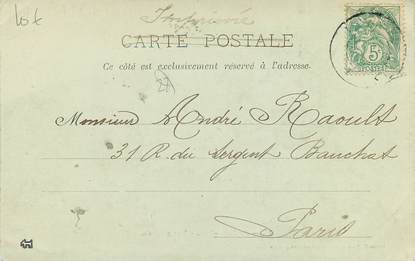 Lot
Imprimée
CARTE POSTALE
Ce côté est exclusivement réservé à l'adresse.
5c
Monsieur André Raoult
31 R. du Sergent Bauchat
Paris